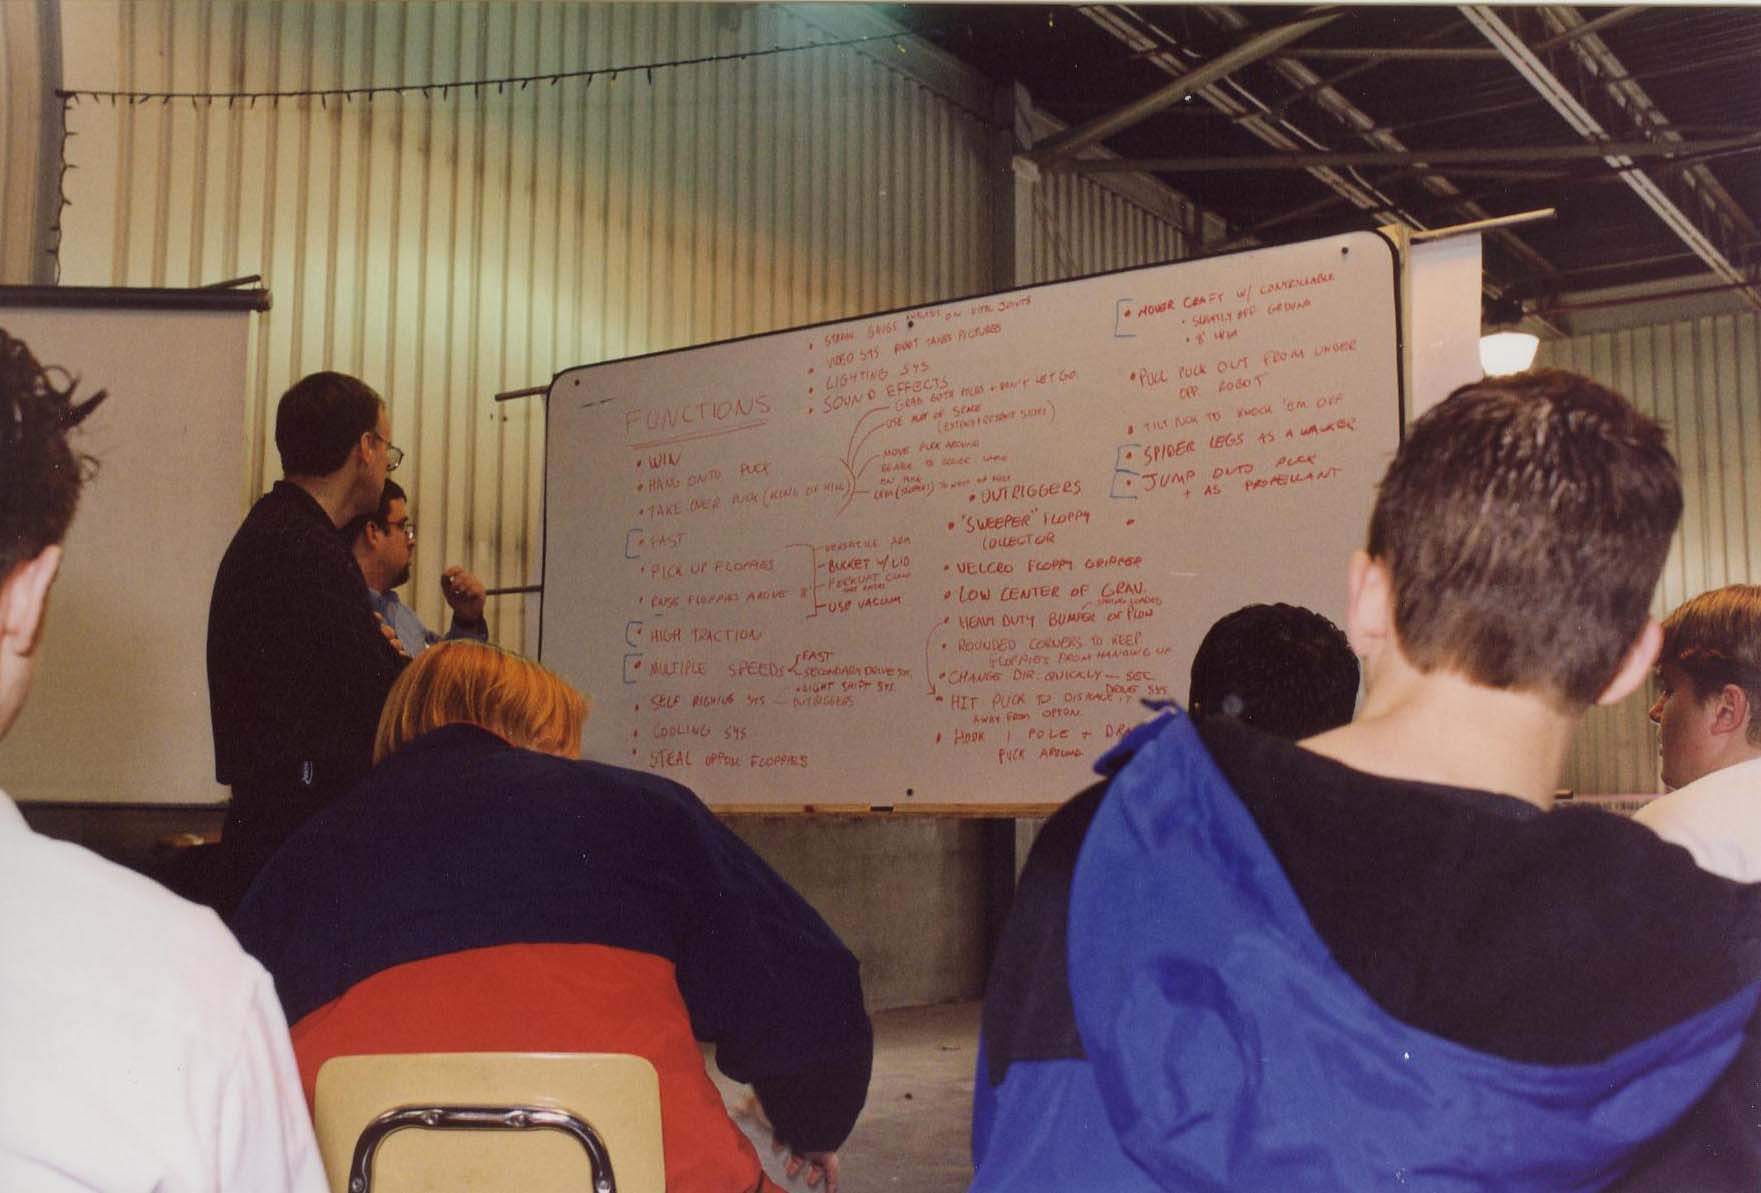 FUNCTIONS
• WIN
• HANG ONTO PUCK
• TAKE OVER PUCK (KING OF HILL)
• FAST
• PICK UP FLOPPIES
• RAISE FLOPPIES ABOVE 8'
• HIGH TRACTION
• MULTIPLE SPEEDS
FAST
SECONDARY DRIVE SYS.
• LIGHT SHIFT SYS.
• SELF RIGHING SYS - OUTRIGGERS
• COOLING SYS
• STEAL OPPON FLOPPIES
VERSATILE ARM
BUCKET W/ LID
FORKLIFT
USE VACUUM
• STRAIN GAUGE ON JOINTS
• VIDEO SYS ROBOT TAKES PICTURES
• LIGHTING SYS.
• SOUND EFFECTS
GRAB BOTH + DON'T LET GO
USE OF SPACE
MOVE PUCK AROUND
• OUTRIGGERS
• "SWEEPER" FLOPPY
COLLECTOR
• VELCRO FLOPPY GRIPPER
• LOW CENTER OF GRAV.
SPRING LOADED
• HEAVY DUTY BUMPER OR PLOW
• ROUNDED CORNERS TO KEEP
FLOPPIES FROM HANGING UP
• CHANGE DIR. QUICKLY - SEC.
DRIVE SYS.
• HIT PUCK TO DISLODGE IT
AWAY FROM OPPON.
• HOOK 1 POLE + DRA
PUCK AROUND
• HOVER CRAFT W/ CONTROLLABLE
• SLIGHTLY OFF GROUND
• 8' HIGH
• PULL PUCK OUT FROM UNDER
OPP. ROBOT
• TILT PUCK TO KNOCK 'EM OFF
• SPIDER LEGS AS A WALKER
• JUMP ONTO PUCK
+ AS PROPELLANT